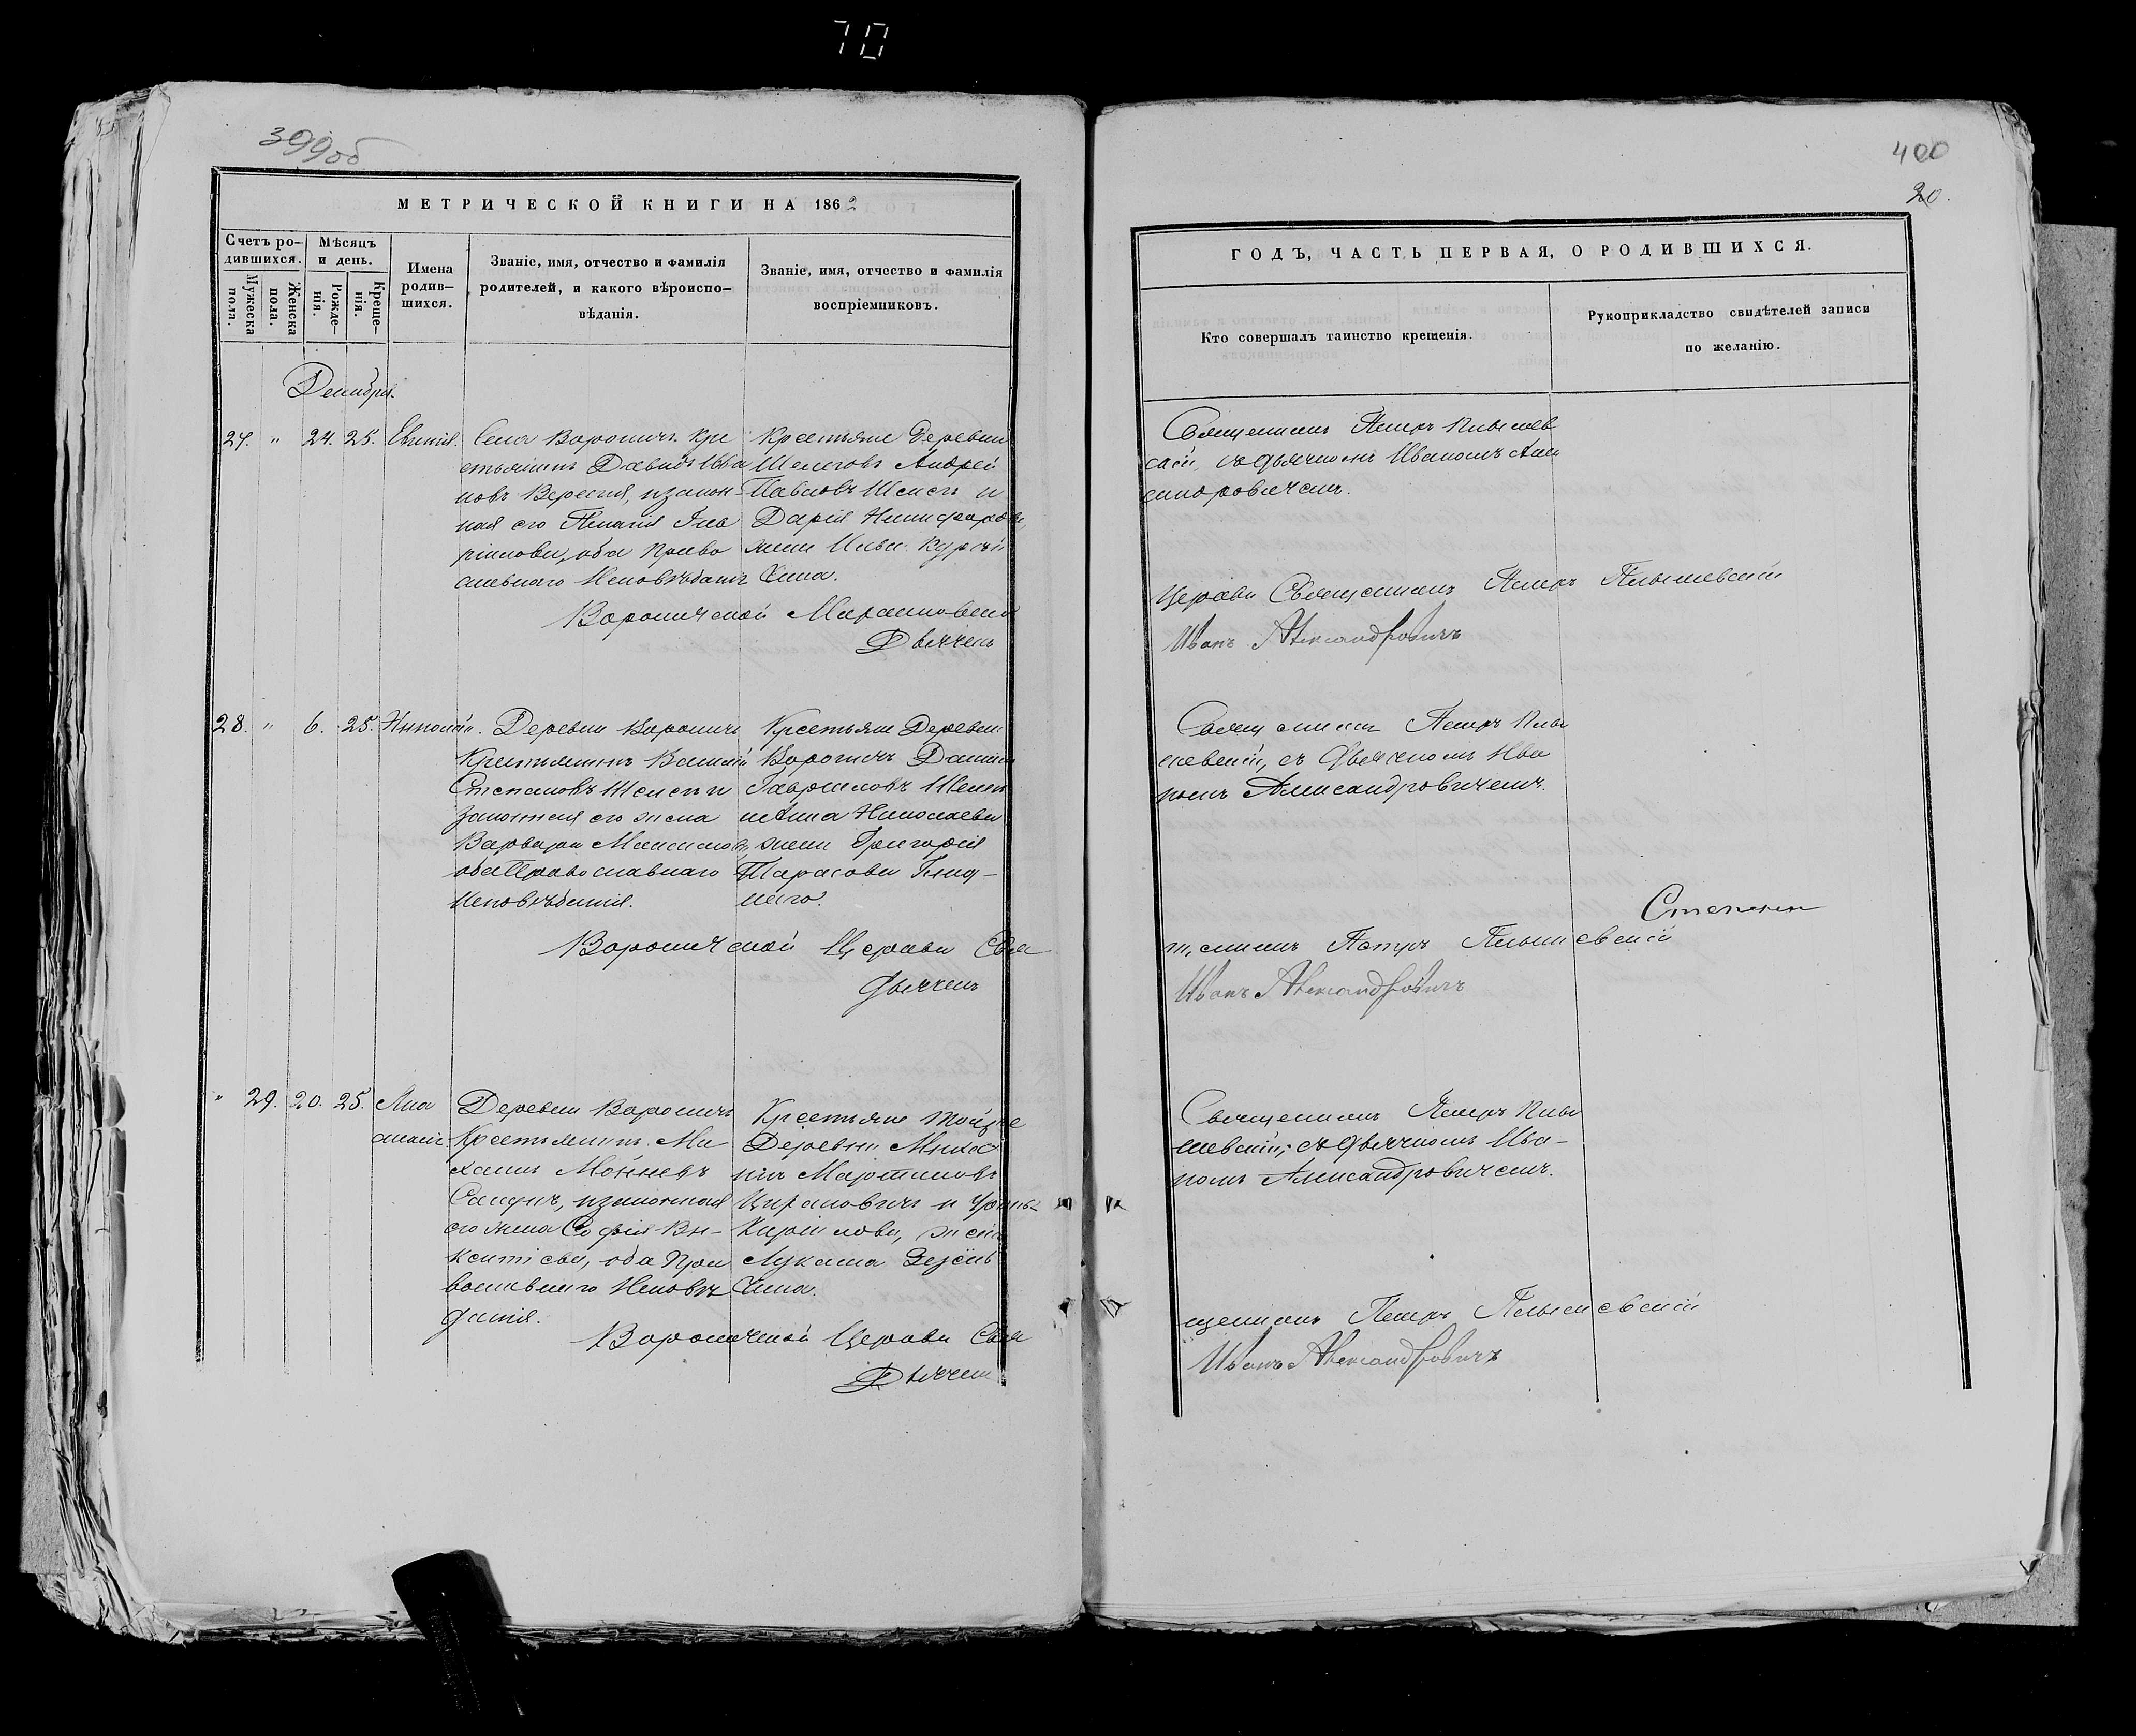 70
399 об
МЕТРИЧЕСКОЙ КНИГИ НА 1862
Счетъ ро-
дившихся.
Мужеска
пола.
Женска
пола.
Мѣсяцъ
и день.
Рожде-
нія.
Креще-
нія.
Имена
родив-
шихся.
Званіе, имя, отчество и фамилія
родителей, и какого вѣроиспо-
вѣданія.
Званіе, имя, отчество и фамилія
воспріемниковъ.
Декабрь.
27. " 24. 25.
Села Вороничъ Кре
стьянинъ Давидъ Ива
новъ Верегія, изакон-
ная его
оба Право
славнаго Исповѣданія
Крестьяне Деревни
Шелеговъ Андрей
Павловъ Шелегъ и
Дарія Никифорова,
жена
Сина.
Вороничской
Дьячекъ
28. " 6. 25. Николай.
Деревни Вороничъ
Крестьянинъ Василій
Степановъ Шелегъ и
законная его жена
Варвара Максимова,
оба Православнаго
Исповѣданія.
Крестьяне Деревни
Вороничъ Даніилъ
Гавриловъ Шелегъ
и Анна Николаева
жена Григорія
Тарасова
Вороничской Церкви Свя
Дьячекъ
" 29. 20. 25. Ана
Деревни Вороничъ
Крестьянинъ Ми
хаилъ
изаконная
его жена Софія Ви-
кентіева, оба Пра
вославнаго Исповѣ
данія.
Крестьяне тойже
Деревни Миха
илъ Мартиновъ
Цирановичъ и
Кирилова, жена
Лукаша
Сина.
Вороничской Церкви Свя
Дьячекъ
400
20.
ГОДЪ, ЧАСТЬ ПЕРВАЯ, О РОДИВШИХСЯ.
Кто совершалъ таинство крещенія.
Рукоприкладство свидѣтелей записи
по желанію.
Священникъ Петръ Плышев
скій, съ Дьячкомъ Иваномъ Алек
сандровичемъ.
Церкви Священникъ Петръ Плышевскій
Иванъ Александровичъ
Священникъ Петръ Плы
шевскій, съ Дьячкомъ Ива
номъ Александровичемъ.
Степень
щенникъ Петръ Плышевскій
Иванъ Александровичъ
Священникъ Петръ Плы
шевскій, съ Дьячкомъ Ива-
номъ Александровичемъ.
щенникъ Петръ Плышевскій
Иванъ Александровичъ